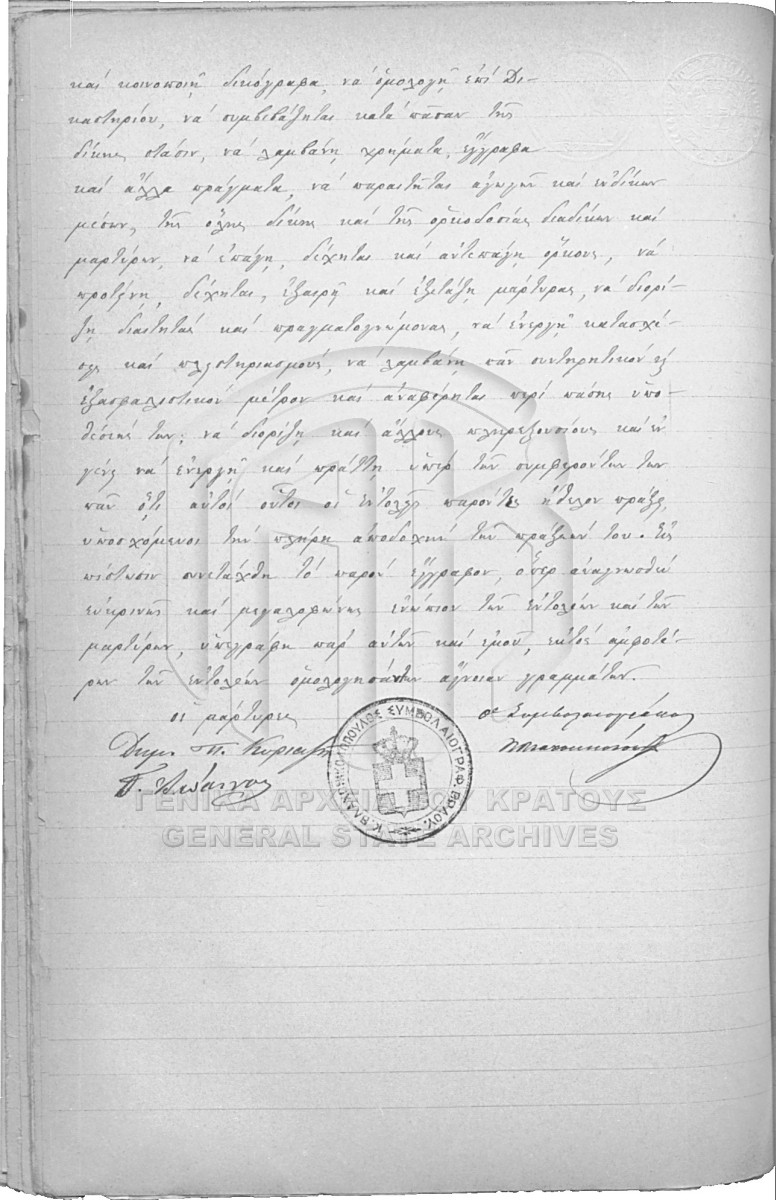 καί κοινοποιῇ δικόγραφα, νά ὁμολογῇ ἐπί Δι-
καστηρίου, νά συμβιβάζηται κατά πᾶσαν τῆς
δίκης στάσιν, νά λαμβάνῃ χρήματα, ἔγγραφα
καί ἄλλα πράγματα, νά παραιτῆται ἀγωγῶν καί ἐνδίκων
μέσων, τῆς ὅλης δίκης καί τῆς ὁρκοδοσίας διαδίκων καί
μαρτύρων, νά ἐπάγῃ, δέχηται καί ἀντεπάγῃ ὅρκους, νά
προτείνῃ, δέχηται, ἐξαιρῇ καί ἐξετάζῃ μάρτυρας, νά διορί-
ζῃ διαιτητάς καί πραγματογνώμονας, νά ἐνεργῇ κατασχέ-
σεις καί πλειστηριασμούς, νά λαμβάνῃ πᾶν συντηρητικόν εἴ
ἐξασφαλιστικόν μέτρον καί ἀναφέρηται περί πάσης ὑπο-
θέσεώς των, νά διορίζῃ καί ἄλλους πληρεξουσίους καί ἐν
γένει νά ἐνεργῇ καί πράττῃ ὑπέρ τῶν συμφερόντων των
πᾶν ὅ,τι αὐτοί οὗτοι οἱ ἐντολεῖς παρόντες ἤθελον πράξει,
ὑποσχόμενοι τήν πλήρη ἀποδοχήν τῶν πράξεών του. Εἰς
πίστωσιν συνετάχθη τό παρόν ἔγγραφον, ὅπερ ἀναγνωσθέν
εὐκρινῶς καί μεγαλοφώνως ἐνώπιον τῶν ἐντολέων καί τῶν
μαρτύρων, ὑπεγράφη παρ' αὐτῶν καί ἐμοῦ, ἐκτός ἀμφοτέ-
ρων τῶν ἐντολέων ὁμολογησάντων ἄγνοιαν γραμμάτων.
οἱ μάρτυρες
ὁ Συμβολαιογράφος
Δημ. Π.
ΣΥΜΒΟΛΑΙΟΓΡΑΦ.
ΓΕΝΙΚΑ ΑΡΧΕΙΑ ΤΟΥ ΚΡΑΤΟΥΣ
GENERAL STATE ARCHIVES